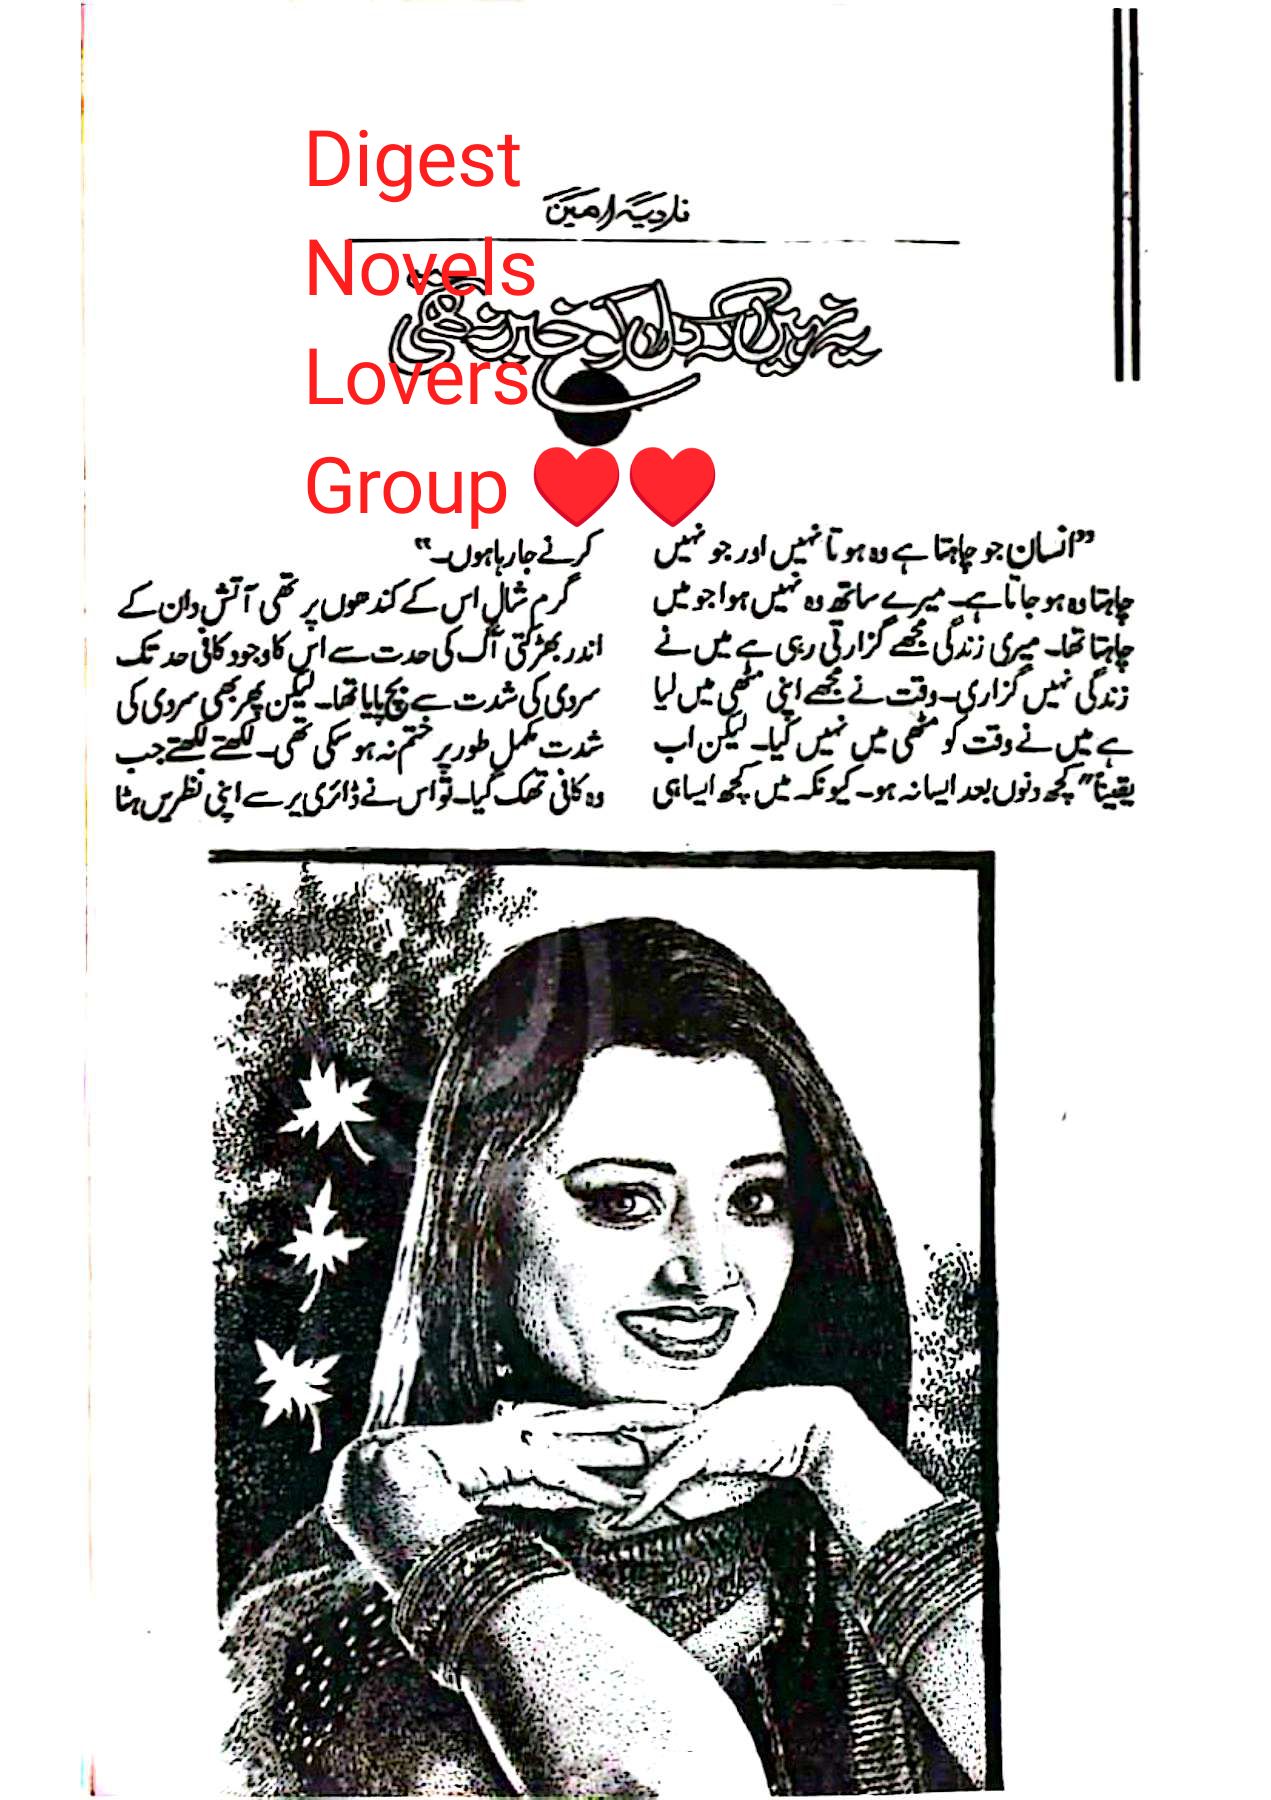 Digest
Novels
Lovers
Group ❤️❤️
نادیہ امین
یہ نہیں کہ دل کو خبر نہ تھی
”انسان جو چاہتا ہے وہ ہوتا نہیں اور جو نہیں
چاہتا وہ ہو جاتا ہے۔ میرے ساتھ وہ نہیں ہوا جو میں
چاہتا تھا۔ میری زندگی مجھے گزارتی رہی ہے میں نے
زندگی نہیں گزاری۔ وقت نے مجھے اپنی مٹھی میں لیا
ہے میں نے وقت کو مٹھی میں نہیں کیا۔ لیکن اب
یقیناً" کچھ دنوں بعد ایسا نہ ہو۔ کیونکہ میں کچھ ایسا ہی
کرنے جا رہا ہوں۔“
گرم شال اس کے کندھوں پر تھی آتش دان کے
اندر بھڑکتی آگ کی حدت سے اس کا وجود کافی حد تک
سردی کی شدت سے بچ پایا تھا۔ لیکن پھر بھی سردی کی
شدت مکمل طور پر ختم نہ ہو سکی تھی۔ لکھتے لکھتے جب
وہ کافی تھک گیا۔ تو اس نے ڈائری پر سے اپنی نظریں ہٹا